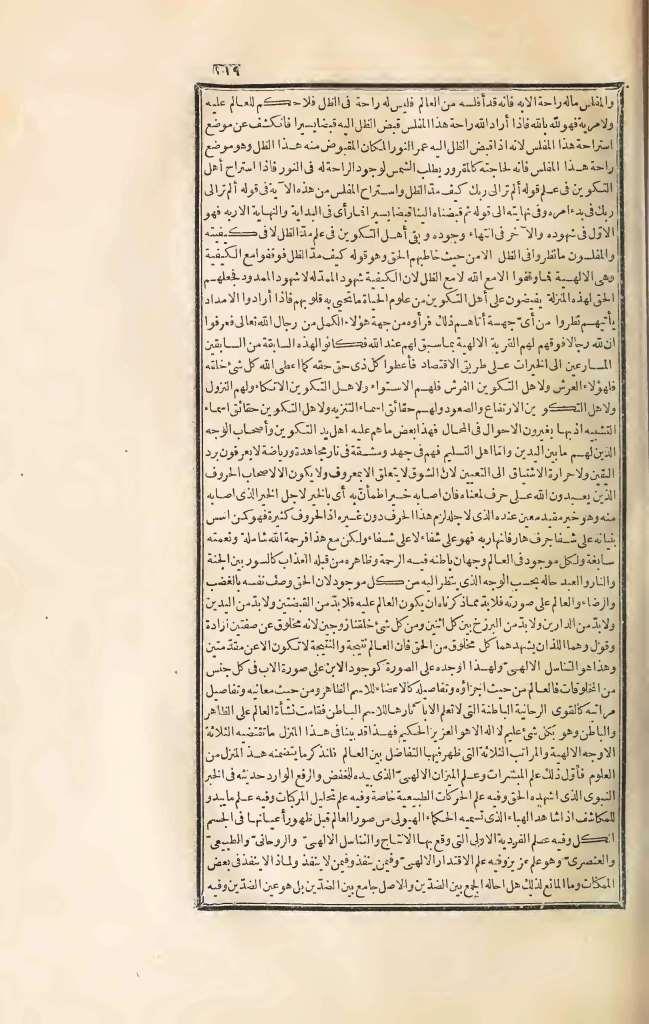 ٢١٩
والمفلس ماله راحة الا به فانه قد أفلسه من العالم فليس له راحة فى الظل فلا حكم للعالم عليه
ولا مرية فهو لله بالله فاذا أراد الله راحة هذا المفلس قبض الظل اليه قبضا يسيرا فانكشف عن موضع
استراحة هذا المفلس لانه اذا قبض الظل اليه عمر النور المكان المقبوض منه هذا الظل وهو موضع
راحة هذا المفلس فانه لحاجته كالمقرور يطلب الشمس لوجود الراحة له فى النور فاذا استراح أهل
التكوين فى علم قوله ألم تر الى ربك كيف مد الظل واستراح المفلس من هذه الآية فى قوله ألم تر الى
ربك فى بدء امره وفى نهايته الى قوله ثم قبضناه الينا قبضا يسيرا فما رأى فى البداية والنهاية الا ربه فهو
الاول فى شهوده والآخر فى انتهاء وجوده وبقى أهل التكوين فى علم مد الظل لا فى كيفيته
والمفلسون ما نظروا فى الظل الا من حيث خاطبهم الحق وهو قوله كيف مد الظل فوقفوا مع الكيفية
وهى الالهية فما وقفوا الا مع الله لا مع الظل لان الكيفية شهود الممد له لا شهود الممدود فجعلهم
الحق لهذه المنزلة يفيضون على أهل التكوين من علوم الحياة ما تحيى به قلوبهم فاذا أرادوا الامداد
يأتيهم نظروا من أى جهة أتاهم ذلك فرأوه من جهة هؤلاء الكمل من رجال الله تعالى فعرفوا
ان لله رجالا فوقهم لهم القربة الالهية بما سبق لهم عند الله فكانوا لهذه السابقة من السابقين
المسارعين الى الخيرات على طريق الاقتصاد فأعطوا كل ذى حق حقه كما اعطى الله كل شئ خلقه
فلهؤلاء العرش ولاهل التكوين الفرش فلهم الاستواء ولاهل التكوين الاتكاء ولهم النزول
ولاهل التكوين الارتفاع والصعود ولهم حقائق اسماء التنزيه ولاهل التكوين حقائق اسماء
التشبيه اذ بها يغيرون الاحوال فى المحال فهذا بعض ما هم عليه اهل يد التكوين وأصحاب الوجه
الذين لهم ما بين اليدين واما اهل التسليم فهم فى جهد ومشقة فى نار مجاهدة ورياضة لا يعرفون برد
اليقين ولا حرارة الاشتياق الى التعيين لان الشوق لا يتعلق الا بمعروف ولا يكون الا لاصحاب الحروف
الذين يعبدون الله على حرف لمعناه فان اصابه خير اطمأن به أى بالخير لاجل الخير الذى اصابه
منه وهو خير مقيد معين عنده الذى لاجله لزم هذا الحرف دون غيره اذ الحروف كثيرة فهو كمن اسس
بنيانه على شفا جرف هار فانهار به فهو على شفاء لا على شفاء ولكن مع هذا فرحمة الله شاملة ونعمته
سابغة ولكل موجود فى العالم وجهان باطنه فيه الرحمة وظاهره من قبله العذاب كالسور بين الجنة
والنار والعبد حاله بحسب الوجه الذى ينظر اليه من كل موجود لان الحق وصف نفسه بالغضب
والرضاء والعالم على صورته فلا بد مما ذكرناه ان يكون العالم عليه فلا بد من القبضتين ولا بد من اليدين
ولا بد من الدارين ولا بد من البرزخ بين كل اثنين ومن كل شئ خلقنا زوجين لانه مخلوق عن صفتين ارادة
وقول وهما اللذان يشهدهما كل مخلوق من الحق فان العالم نتيجة والنتيجة لا تكون الا عن مقدمتين
وهذا هو التناسل الالهى ولهذا اوجده على الصورة كوجود الابن على صورة الاب فى كل جنس
من المخلوقات فالعالم من حيث اجزاؤه وتفاصيله كالاعضاء للاسم الظاهر ومن حيث معانيه وتفاصيل
مراتبه كالقوى الروحانية الباطنة التى لا تعلم الا بآثارها للاسم الباطن فقامت نشأة العالم على الظاهر
والباطن وهو بكل شئ عليم لا اله الا هو العزيز الحكيم فهذا قد بينا فى هذا المنزل ما تقتضيه الثلاثة
الاوجه الالهية والمراتب الثلاثة التى ظهر فيها التفاضل بين العالم فلنذكر ما يتضمنه هذا المنزل من
العلوم فأول ذلك علم المبشرات وعلم الميزان الالهى الذى بيده للخفض والرفع الوارد حديثه فى الخبر
النبوى الذى اشهده الحق وفيه علم الحركات الطبيعية خاصة وفيه علم تحليل المركبات وفيه علم ما يبدو
للمكاشف اذا شاهد الهباء الذى تسميه الحكماء الهيولى من صور العالم قبل ظهور أعيانها فى الجسم
الكل وفيه علم الفردية الاولى التى وقع بها الانتاج والتناسل الالهى والروحانى والطبيعى
والعنصرى وهو علم عزيز وفيه علم الاقتدار الالهى وفيمن ينفذ وفيمن لا ينفذ ولماذا لا ينفذ فى بعض
الممكنات وما المانع لذلك هل احاله الجمع بين الضدين والاصل جامع بين الضدين بل هو عين الضدين وفيه